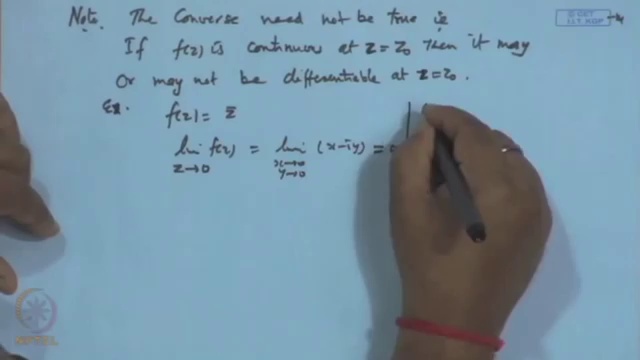 Note. The Converse need not be true ie
© CET
I.I.T. KGP
If f(z) is continuous at z = z₀ then it may
Or may not be differentiable at z = z₀.
Ex. f(z) = z̄
lim f(z) = lim (x-iy) = 0
z→0 x→0
y→0
NPTEL